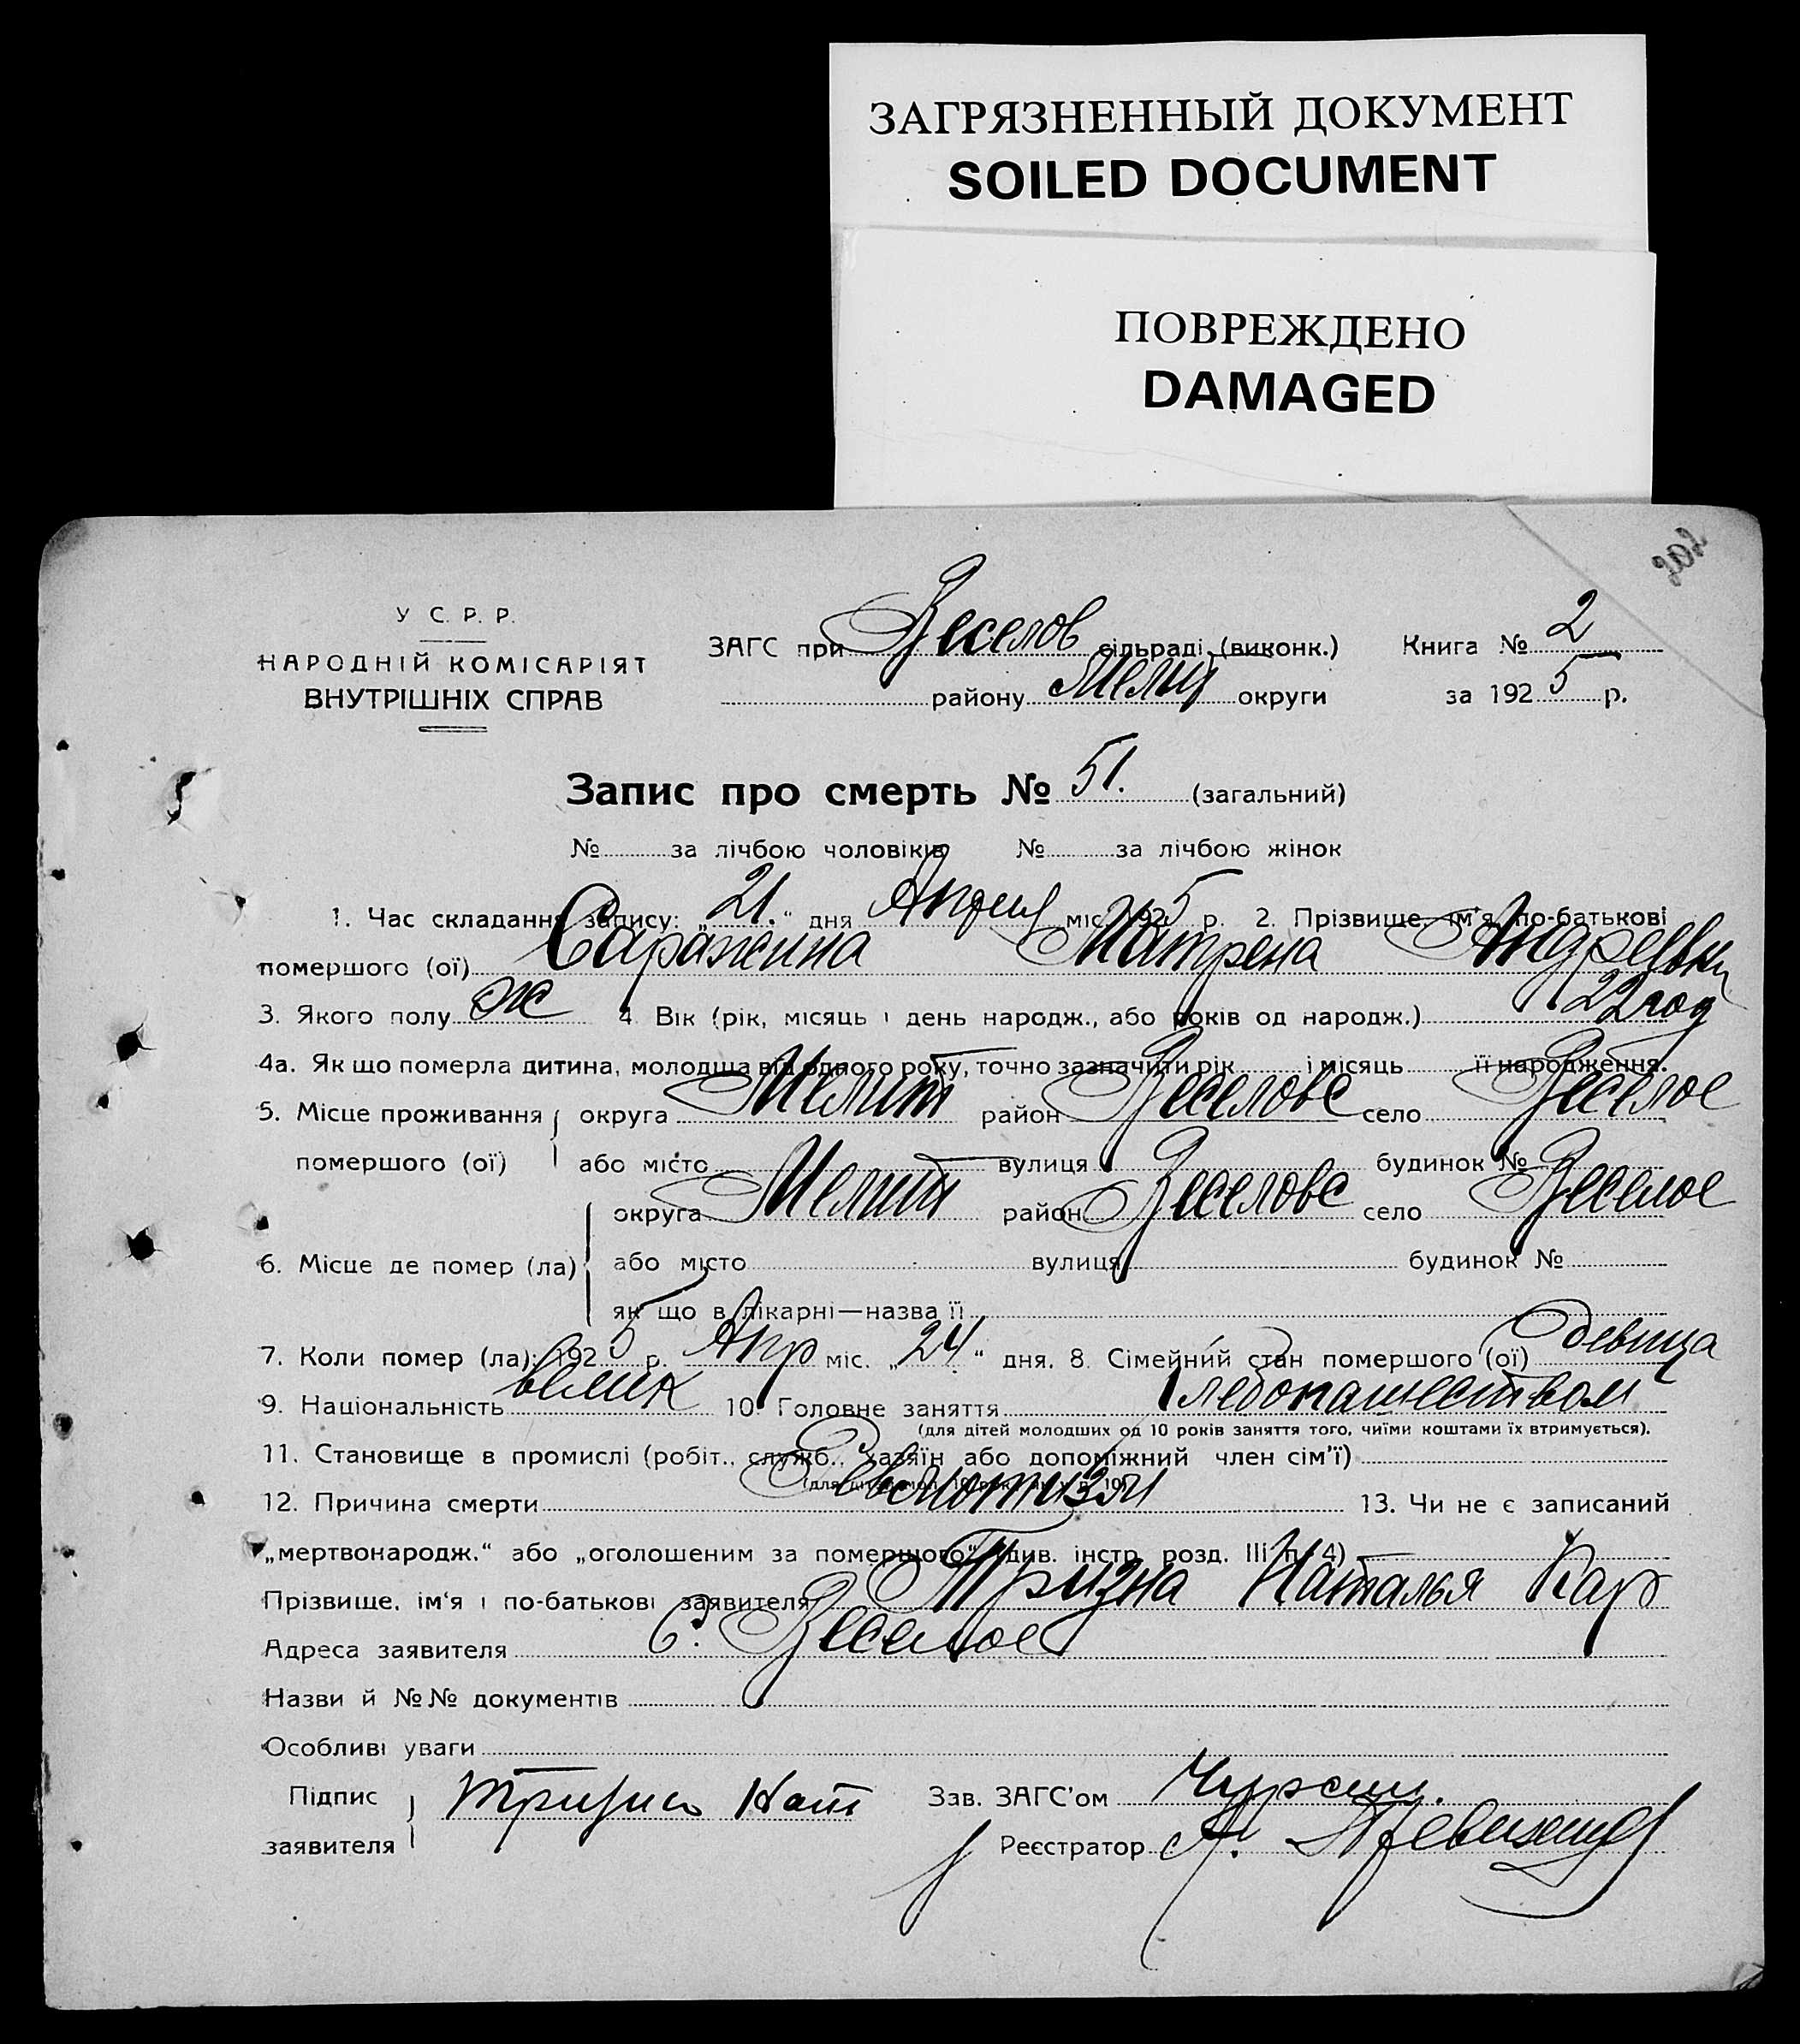 ЗАГРЯЗНЕННЫЙ ДОКУМЕНТ
SOILED DOCUMENT
ПОВРЕЖДЕНО
DAMAGED
202
У С. Р. Р.
НАРОДНІЙ КОМІСАРІЯТ
ВНУТРІШНІХ СПРАВ
ЗАГС при Веселов сільраді (виконк.) Книга № 2
району Мелит округи за 1925 р.
Запис про смерть № 51. (загальний)
№ за лічбою чоловіків № за лічбою жінок
1. Час складання запису: „21." дня Апреля міс. 1925 р. 2. Прізвище, ім'я, по-батькові
помершого (ої) Саражина Матрена Андреевн
3. Якого полу ж 4 Вік (рік, місяць і день народж., або років од народж.) 22 год
4а. Як що померла дитина, молодша від одного року, точно зазначити рік і місяць її народження.
5. Місце проживання округа Мелит район Веселовс село Веселое
помершого (ої) або місто вулиця будинок №
округа Мелит район Веселовс село Веселое
6. Місце де помер (ла) або місто вулиця будинок №
як що в лікарні—назва її
7. Коли помер (ла): 1925 р. Апр міс. „24" дня. 8. Сімейний стан помершого (ої) девица
9. Національність велик 10. Головне заняття Хлебопашеством
(для дітей молодших од 10 років заняття того, чиїми коштами їх втримується).
11. Становище в промислі (робіт., служб., хазяїн або допоміжний член сім'ї)
12. Причина смерти Ревмотизм 13. Чи не є записаний
„мертвонародж." або „оголошеним за помершого" (див. інстр. розд. III п. 4)
Прізвище, ім'я і по-батькові заявителя Тризна Наталья Кар
Адреса заявителя С. Веселое
Назви й №№ документів
Особливі уваги
Підпис Тризна Нат Зав. ЗАГС'ом
заявителя Реєстратор А.